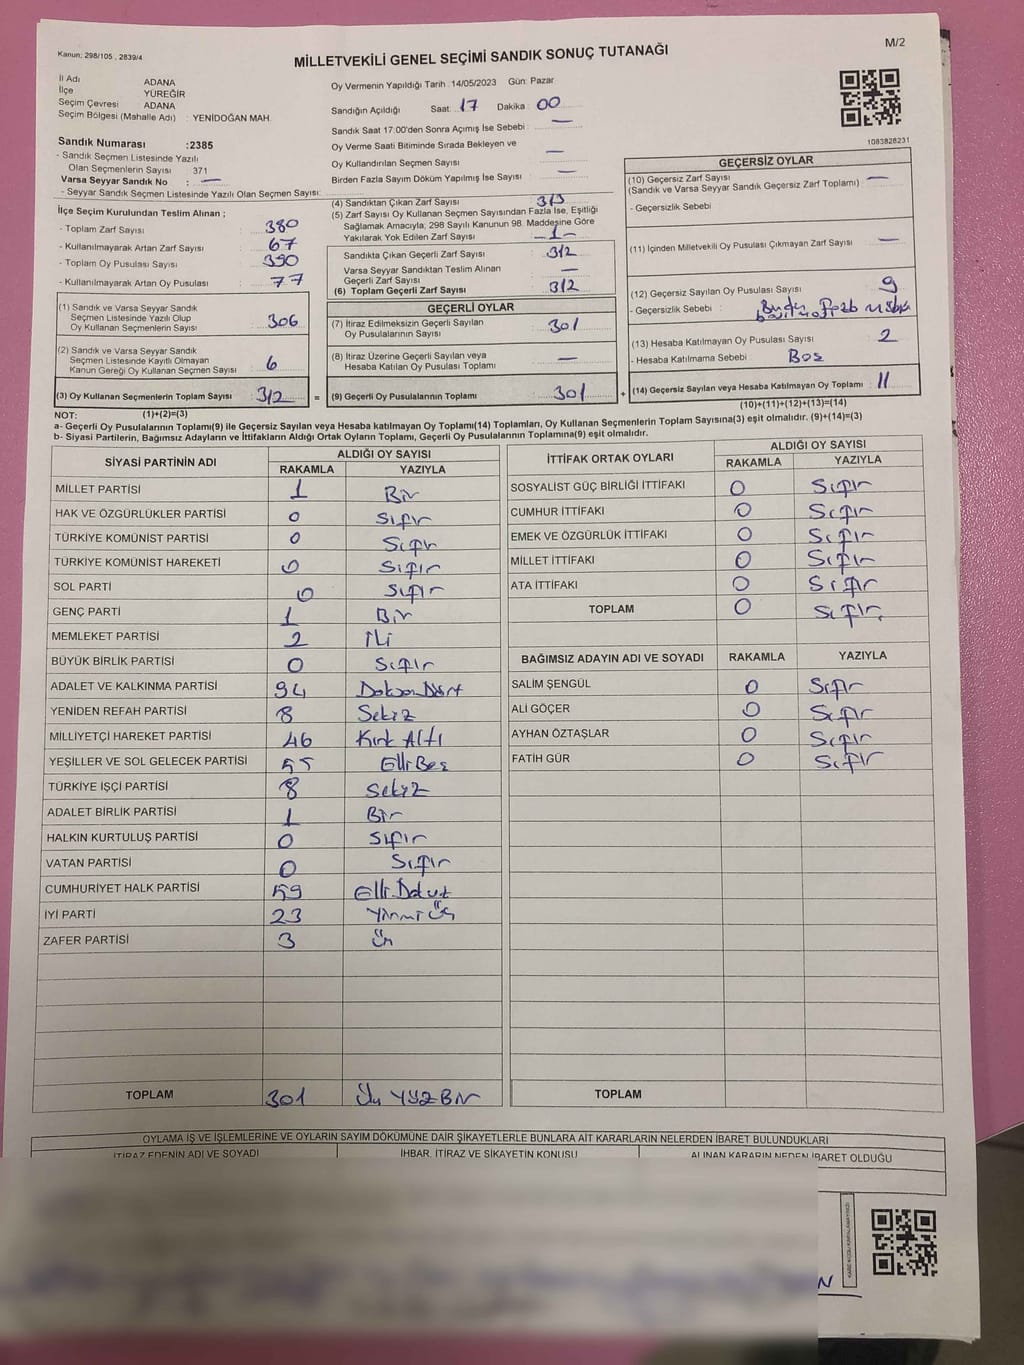 Kanun: 298/105 , 2839/4
MİLLETVEKİLİ GENEL SEÇİMİ SANDIK SONUÇ TUTANAĞI
M/2
İl Adı ADANA
İlçe YÜREĞİR
Seçim Çevresi ADANA
Seçim Bölgesi (Mahalle Adı) : YENİDOĞAN MAH.
Sandık Numarası :2385
- Sandık Seçmen Listesinde Yazılı
Olan Seçmenlerin Sayısı 371
Varsa Seyyar Sandık No : —
- Seyyar Sandık Seçmen Listesinde Yazılı Olan Seçmen Sayısı:
Oy Vermenin Yapıldığı Tarih :14/05/2023 Gün: Pazar
Sandığın Açıldığı Saat: 17 Dakika : 00
Sandık Saat 17:00'den Sonra Açımış İse Sebebi : —
Oy Verme Saati Bitiminde Sırada Bekleyen ve
Oy Kullandırılan Seçmen Sayısı : —
Birden Fazla Sayım Döküm Yapılmış İse Sayısı : —
1083828231
İlçe Seçim Kurulundan Teslim Alınan ;
- Toplam Zarf Sayısı : 380
- Kullanılmayarak Artan Zarf Sayısı : 67
- Toplam Oy Pusulası Sayısı : 390
- Kullanılmayarak Artan Oy Pusulası : 77
(1) Sandık ve Varsa Seyyar Sandık
Seçmen Listesinde Yazılı Olup
Oy Kullanan Seçmenlerin Sayısı : 306
(2) Sandık ve Varsa Seyyar Sandık
Seçmen Listesinde Kayıtlı Olmayan
Kanun Gereği Oy Kullanan Seçmen Sayısı : 6
(3) Oy Kullanan Seçmenlerin Toplam Sayısı : 312 =
(4) Sandıktan Çıkan Zarf Sayısı : 313
(5) Zarf Sayısı Oy Kullanan Seçmen Sayısından Fazla İse, Eşitliği
Sağlamak Amacıyla, 298 Sayılı Kanunun 98. Maddesine Göre
Yakılarak Yok Edilen Zarf Sayısı : -1-
Sandıkta Çıkan Geçerli Zarf Sayısı : 312
Varsa Seyyar Sandıktan Teslim Alınan
Geçerli Zarf Sayısı : —
(6) Toplam Geçerli Zarf Sayısı : 312
GEÇERLİ OYLAR
(7) İtiraz Edilmeksizin Geçerli Sayılan
Oy Pusulalarının Sayısı : 301
(8) İtiraz Üzerine Geçerli Sayılan veya
Hesaba Katılan Oy Pusulası Toplamı : —
(9) Geçerli Oy Pusulalarının Toplamı : 301 +
GEÇERSİZ OYLAR
(10) Geçersiz Zarf Sayısı : —
(Sandık ve Varsa Seyyar Sandık Geçersiz Zarf Toplamı)
- Geçersizlik Sebebi
(11) İçinden Milletvekili Oy Pusulası Çıkmayan Zarf Sayısı : —
(12) Geçersiz Sayılan Oy Pusulası Sayısı : 9
- Geçersizlik Sebebi :
(13) Hesaba Katılmayan Oy Pusulası Sayısı : 2
- Hesaba Katılmama Sebebi : Boş
(14) Geçersiz Sayılan veya Hesaba Katılmayan Oy Toplamı : 11
NOT: (1)+(2)=(3)
(10)+(11)+(12)+(13)=(14)
a- Geçerli Oy Pusulalarının Toplamı(9) ile Geçersiz Sayılan veya Hesaba katılmayan Oy Toplamı(14) Toplamları, Oy Kullanan Seçmenlerin Toplam Sayısına(3) eşit olmalıdır. (9)+(14)=(3)
b- Siyasi Partilerin, Bağımsız Adayların ve İttifakların Aldığı Ortak Oyların Toplamı, Geçerli Oy Pusulalarının Toplamına(9) eşit olmalıdır.
SİYASİ PARTİNİN ADI
ALDIĞI OY SAYISI
RAKAMLA YAZIYLA
MİLLET PARTİSİ 1 Bir
HAK VE ÖZGÜRLÜKLER PARTİSİ 0 Sıfır
TÜRKİYE KOMÜNİST PARTİSİ 0 Sıfır
TÜRKİYE KOMÜNİST HAREKETİ 0 Sıfır
SOL PARTİ 0 Sıfır
GENÇ PARTİ 1 Bir
MEMLEKET PARTİSİ 2 İki
BÜYÜK BİRLİK PARTİSİ 0 Sıfır
ADALET VE KALKINMA PARTİSİ 94 Doksan Dört
YENİDEN REFAH PARTİSİ 8 Sekiz
MİLLİYETÇİ HAREKET PARTİSİ 46 Kırk Altı
YEŞİLLER VE SOL GELECEK PARTİSİ 55 Elli Beş
TÜRKİYE İŞÇİ PARTİSİ 8 Sekiz
ADALET BİRLİK PARTİSİ 1 Bir
HALKIN KURTULUŞ PARTİSİ 0 Sıfır
VATAN PARTİSİ 0 Sıfır
CUMHURİYET HALK PARTİSİ 59 Elli Dokuz
İYİ PARTİ 23 Yirmi Üç
ZAFER PARTİSİ 3 Üç
TOPLAM 301 Üç YÜZ BİR
İTTİFAK ORTAK OYLARI
ALDIĞI OY SAYISI
RAKAMLA YAZIYLA
SOSYALİST GÜÇ BİRLİĞİ İTTİFAKI 0 Sıfır
CUMHUR İTTİFAKI 0 Sıfır
EMEK VE ÖZGÜRLÜK İTTİFAKI 0 Sıfır
MİLLET İTTİFAKI 0 Sıfır
ATA İTTİFAKI 0 Sıfır
TOPLAM 0 Sıfır
BAĞIMSIZ ADAYIN ADI VE SOYADI RAKAMLA YAZIYLA
SALİM ŞENGÜL 0 Sıfır
ALİ GÖÇER 0 Sıfır
AYHAN ÖZTAŞLAR 0 Sıfır
FATİH GÜR 0 Sıfır
TOPLAM
OYLAMA İŞ VE İŞLEMLERİNE VE OYLARIN SAYIM DÖKÜMÜNE DAİR ŞİKAYETLERLE BUNLARA AİT KARARLARIN NELERDEN İBARET BULUNDUKLARI
İTİRAZ EDENİN ADI VE SOYADI İHBAR, İTİRAZ VE ŞİKAYETİN KONUSU ALINAN KARARIN NEDEN İBARET OLDUĞU